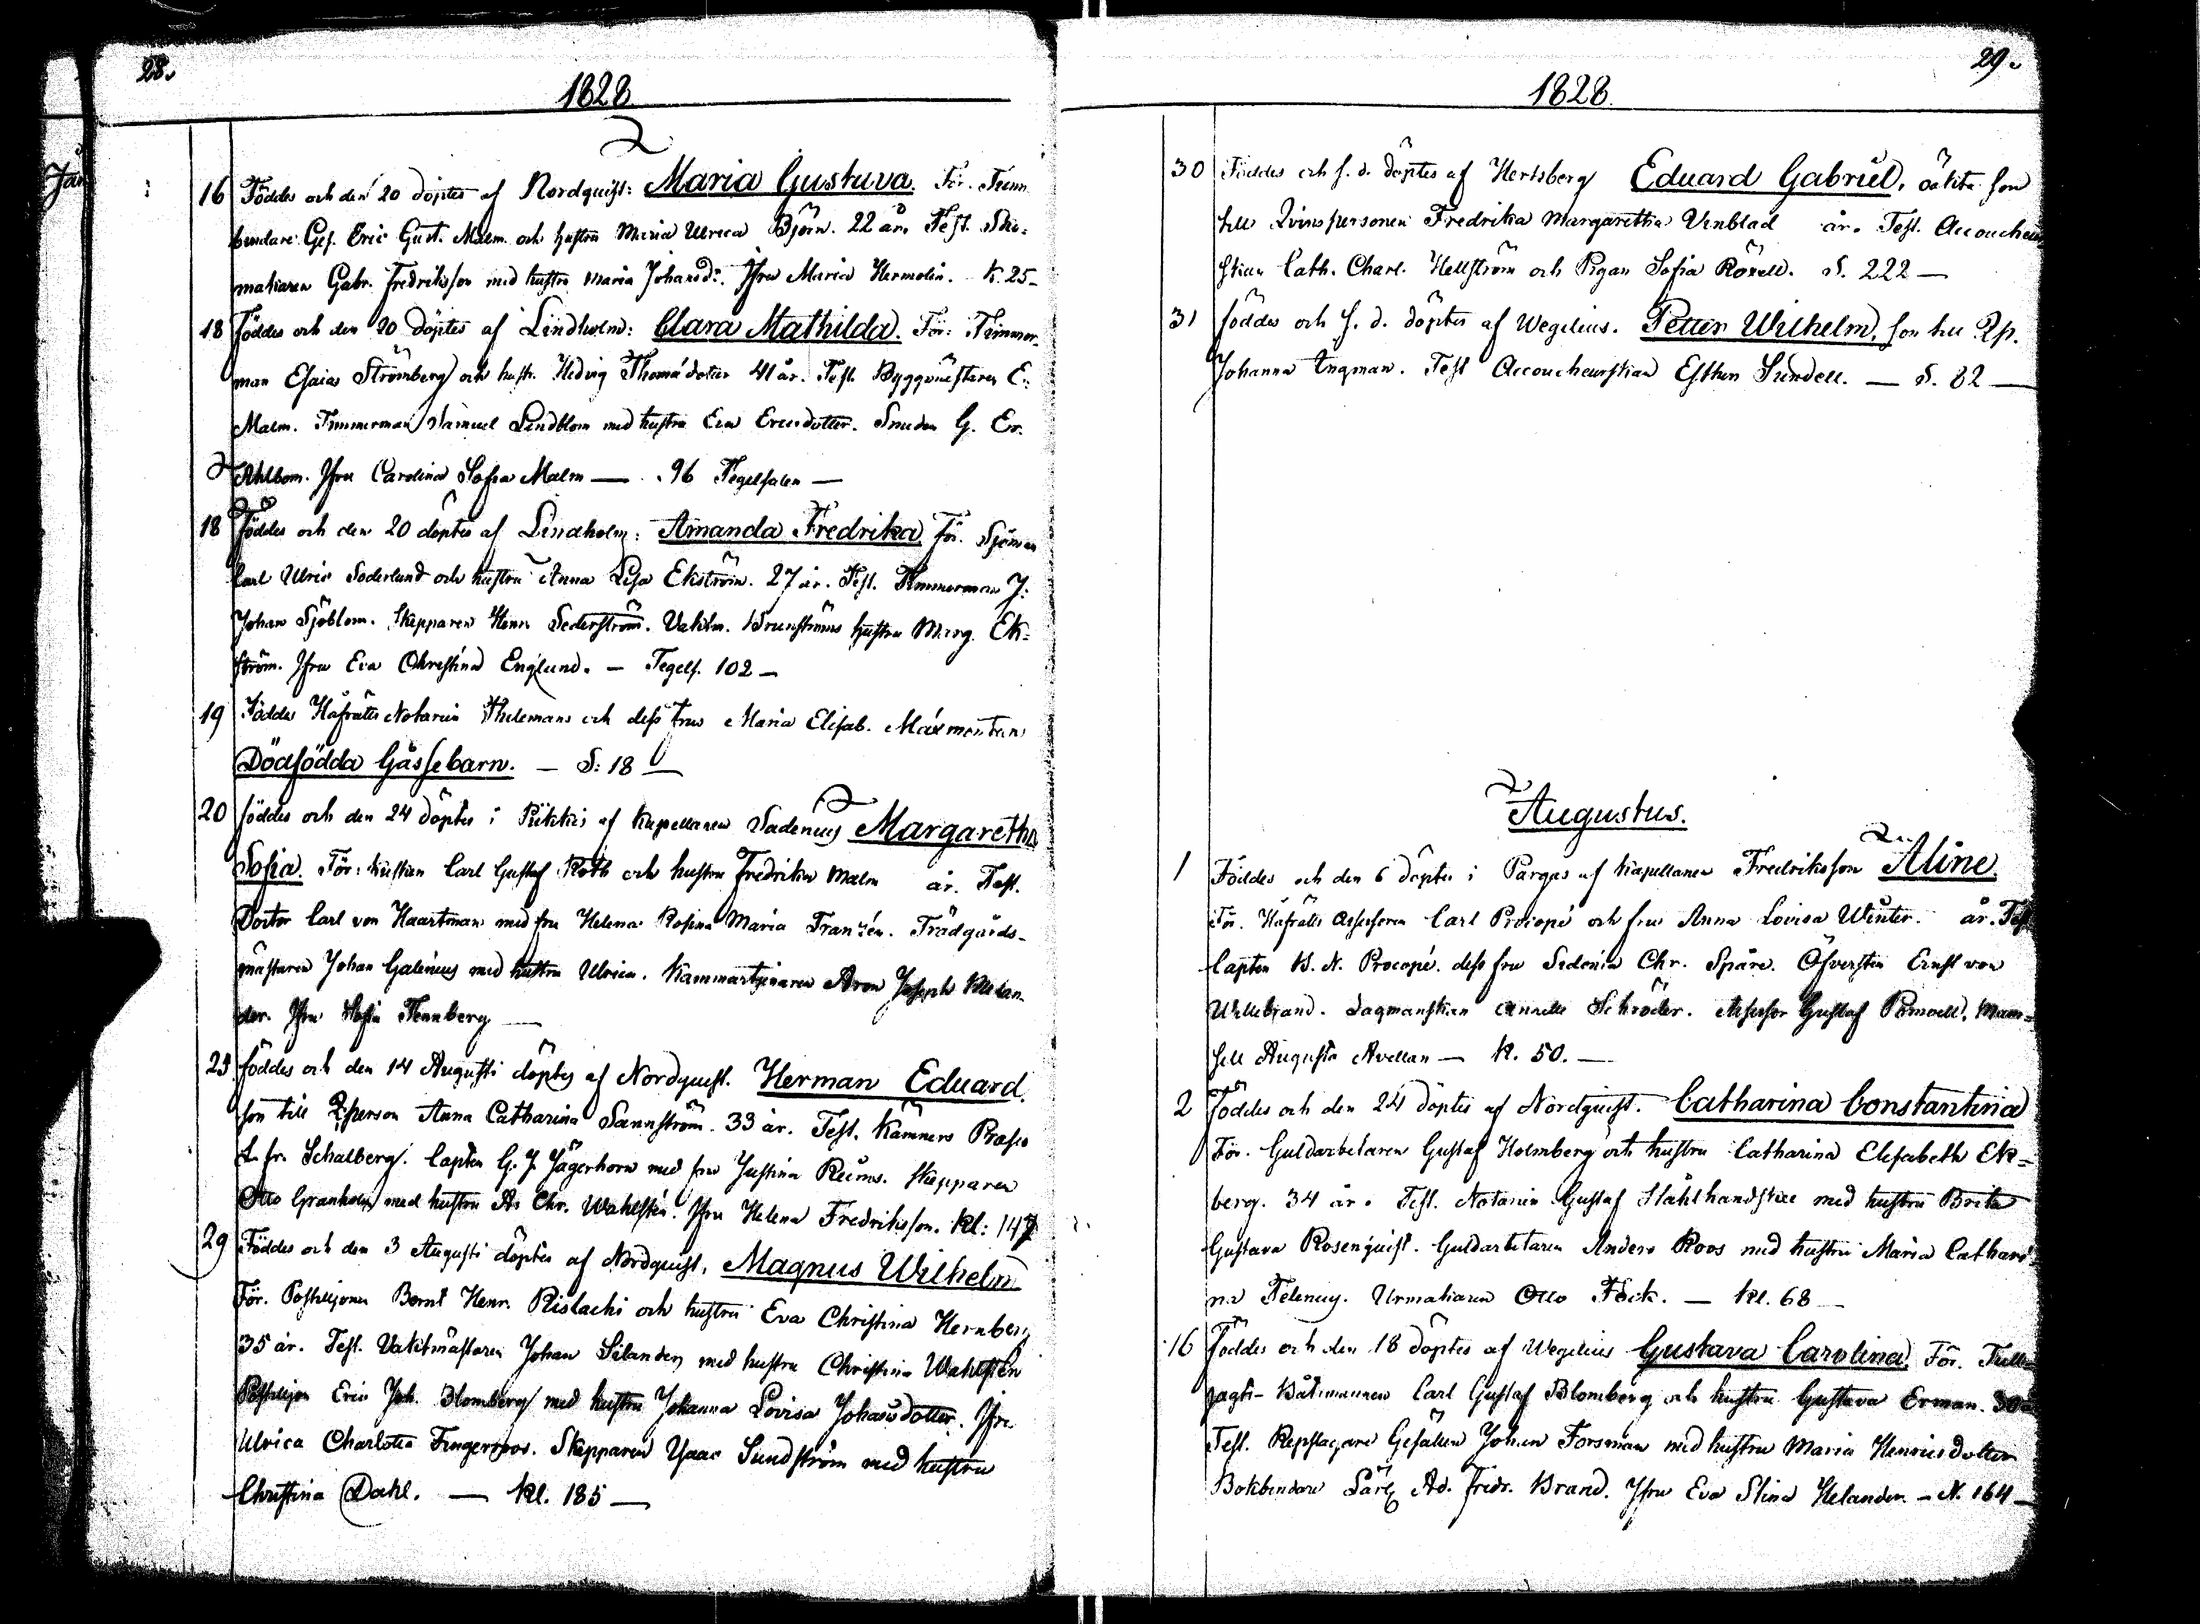 28.
1828
16 Föddes och den 20 döptes af Nordquist: Maria Gustava. För. Tunn
bindare Ges. Eric Gust. Malm och hustru Maria Ulrica Björn. 22 år. Test. Sko-
makaren Gabr. Fredriksson med hustru Maria Johansdr. Jfru Maria Hermolin. K. 25 –
18 Föddes och den 20 döptes af Lindholm: Clara Mathilda. För: Timmer-
man Esaias Strömberg och hustr. Hedvig Thomædotter 41 år. Test. Byggmästaren E:
Malm. Timmerman Samuel Lindblom med hustru Eva Ericsdotter. Smeden G. Er.
Ahlbom. Jfru Carolina Sofia Malm — . 96 Tegelsalen —
18 Föddes och den 20 döptes af Lindholm: Amanda Fredrika För. Sjöman
Carl Ulric Söderlund och hustru Anna Lisa Ekström. 27 år. Test. Timmerman J:
Johan Sjöblom. Skepparen Henr. Sederström. Vaktm. Brunströms hustru Marg. Ek-
ström. Jfru Eva Christina Englund. – Tegels. 102 –
19 Föddes Håfrätts Notarien Thilemans och dess fru Maria Elisab. Maxmontan
Dödfödda Gåssebarn. – S: 18 –
20 föddes och den 24 döptes i Pikkis af Kapellanen Sadenius Margaretha
Sofia. För: Kusken Carl Gustaf Roth och hustru Fredrika Malm år. Test.
Doctor Carl von Haartman med fru Helena Rosina Maria Franzén. Trädgårds-
mästaren Johan Galenius med hustru Ulrica. Kammartjenaren Aron Joseph Melan-
der. Jfru Sofia Tennberg —
23 föddes och den 14 Augusti döptes af Nordquist. Herman Eduard.
son till Q:person Anna Catharina Sannström. 33 år. Test. Kämners Præses
L. fr. Schalberg. Capten G. J. Jägerhorn med fru Justina Reims. Skepparen
Otto Granholm med hustru As Chr. Wahlstén. Jfru Helena Fredriksson. Kl: 147
29 Föddes och den 3 Augusti döptes af Nordquist. Magnus Wilhelm
För. Postiljonen Bernt Henr. Rislachi och hustru Eva Christina Hernberg
35 år. Test. Vaktmästaren Johan Silander med hustru Christina Wahlstén
Postiljon Eric Joh. Blomberg med hustru Johanna Lovisa Johansdotter. Jfru
Ulrica Charlotta Fingerroos. Skepparen Isaac Sundström med hustru
Christina Dahl. — Kl. 185 —
29.
1828.
30 Föddes och s. d. döptes af Hertsberg Eduard Gabriel, oäkta son
till Qvinspersonen Fredrika Margaretha Unblad år. Test. Accoucheur-
skan Cath. Charl. Hellström och Pigan Sofia Roxell. S. 222 —
31 föddes och s. d. döptes af Wegelius. Petter Wilhelm, son till Qp.
Johanna Engman. Test Accoucheurskan Esther Sundell. — S. 82 —
Augustus.
1 Föddes och den 6 döptes i Pargas af Kapellanen Fredriksson Aline.
För. Håfrätts Assessoren Carl Procopé och fru Anna Lovisa Winter. år. Test
Capten B. N. Procopé. dess fru Sedonia Chr. Spåre. Öfversten Ernst von
Willebrand. Lagmanskan Annette Schröder. Assessor Gustaf Pomoell. Mam-
sell Augusta Avellan — K. 50. —
2 Föddes och den 24 döptes af Nordquist. Catharina Constantina
För. Guldarbetaren Gustaf Holmberg och hustru Catharina Elisabeth Ek-
berg. 34 år. Test. Notarien Gustaf Stålhandske med hustru Brita
Gustava Rosenquist. Guldarbetaren Anders Roos med hustru Maria Cathari-
na Telenius. Urmakaren Otto Fock. — Kl. 68 —
16 Föddes och den 18 döptes af Wegelius Gustava Carolina. För. Tull
jagts- Båtsmannen Carl Gustaf Blomberg och hustru Gustava Erman. 30 å
Test. Repslagare Gesällen Johan Forsman med hustru Maria Henricsdotter
Bokbindare Lärl. Ad. Fredr. Brand. Jfru Eva Stina Helander. – N. 164 –